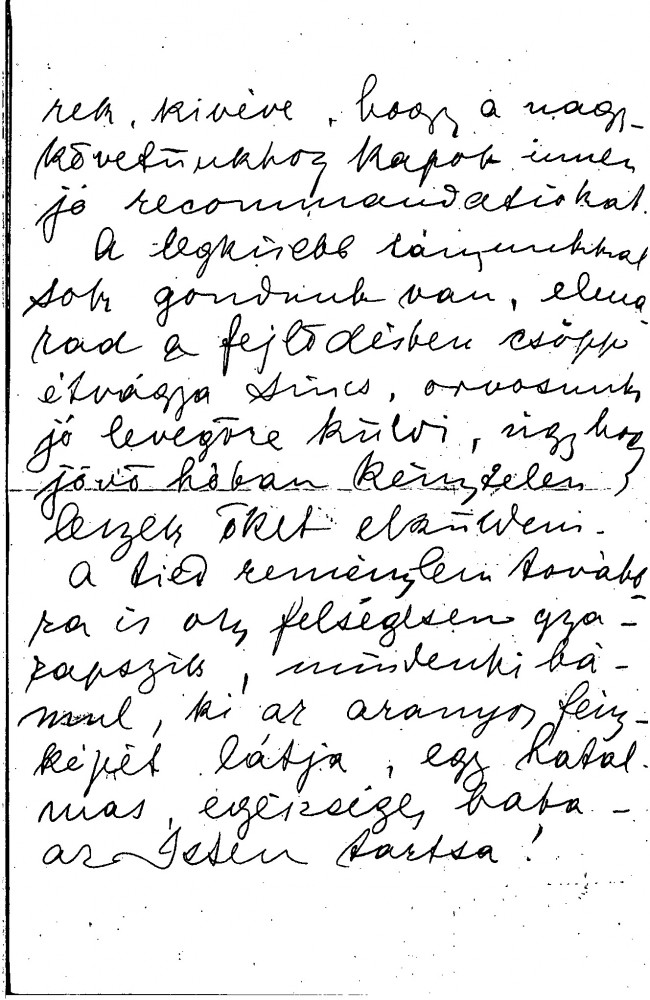 rek, kivéve, hogy a nagy-
követünkhoz kapok innen
jó recommandatiokat.
A legkisebb lányunkkal
sok gondunk van, elma-
rad a fejlődésben csöpp
étvágya sincs, orvosunk
jó levegőre küldi, úgy hogy
jövő hóban kénytelen
leszek őket elküldeni.
A tied reményilem tovább
ra is oly felségesen gya-
rapszik, mindenki bá-
mul, ki az aranyos fény-
képét látja, egy hatal-
mas, egészséges baba -
az Isten tartsa!